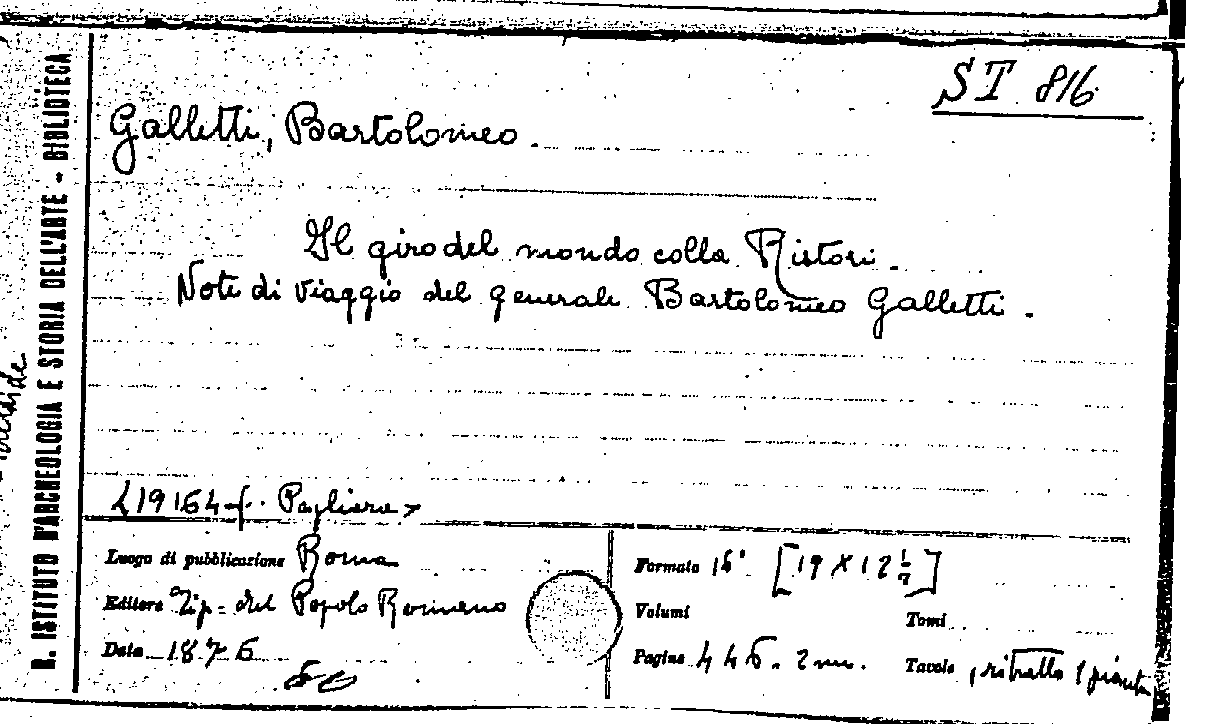 ST 816
Galletti, Bartolomeo.
Il giro del mondo colla Ristori.
Note di viaggio del generale Bartolomeo Galletti.
R. ISTITUTO D'ARCHEOLOGIA E STORIA DELL'ARTE - BIBLIOTECA
Luogo di pubblicazione Roma
Editore Tip. del Popolo Romano
Data 1876
Formato 16° [19 X 12 ½]
Volumi
Tomi
Pagine 446. 2 nn.
Tavole 1 ritratto 1 pianta